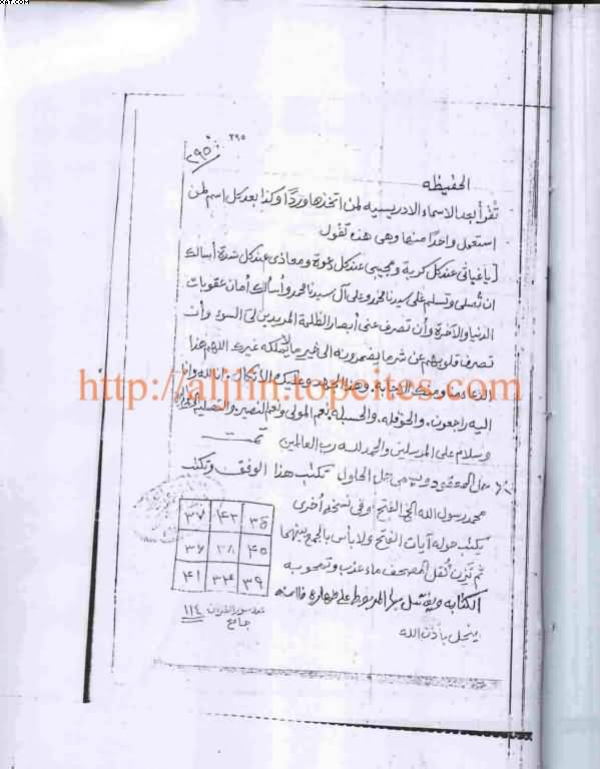 XAT.COM
٢٩٥
٢٩٥
الحفيظه
تقرأ بعد الاسماء الادريسيه لمن اتخذها وردًا وكذا بعد كل اسم لمن
استعمل واحدًا منها وهى هذه تقول
يا غياثى عند كل كربة ومجيبى عند كل دعوة ومعاذى عند كل شدة أسالك
ان تصلى وتسلم على سيدنا محمد وعلى آل سيدنا محمد وأسالك أمان عقوبات
الدنيا والاخرة وأن تصرف عنى أبصار الظلمة المريدين لى السوء وأن
تصرف قلوبهم عن شر ما يضمرونه الى خير ما لا يملكه غيرك اللهم هذا
الدعاء ومنك الاجابه وهذا الجهد وعليك الاتكال انا لله وانا
اليه راجعون. والحوقله. والحسبله نعم المولى ونعم النصير
وسلام على المرسلين والحمد لله رب العالمين تمت
المعقود تكتب هذا الوفق وتكتب
محمد رسول الله الخ الفتح وفى نسخه أخرى
يكتب حوله آيات الفتح ولا بأس بالجمع بينهما
ثم تزن ثقل المصحف ماء عذب وتمحو به
الكتابه ويغتسل بها المربوط على طهارة فانه
ينحل باذن الله
٣٧ ٤٢ ٣٥
٣٦ ٣٨ ٤٠
٤١ ٣٤ ٣٩
عدد سور القرآن ١١٤
جامع
http://aljinn.topcites.com